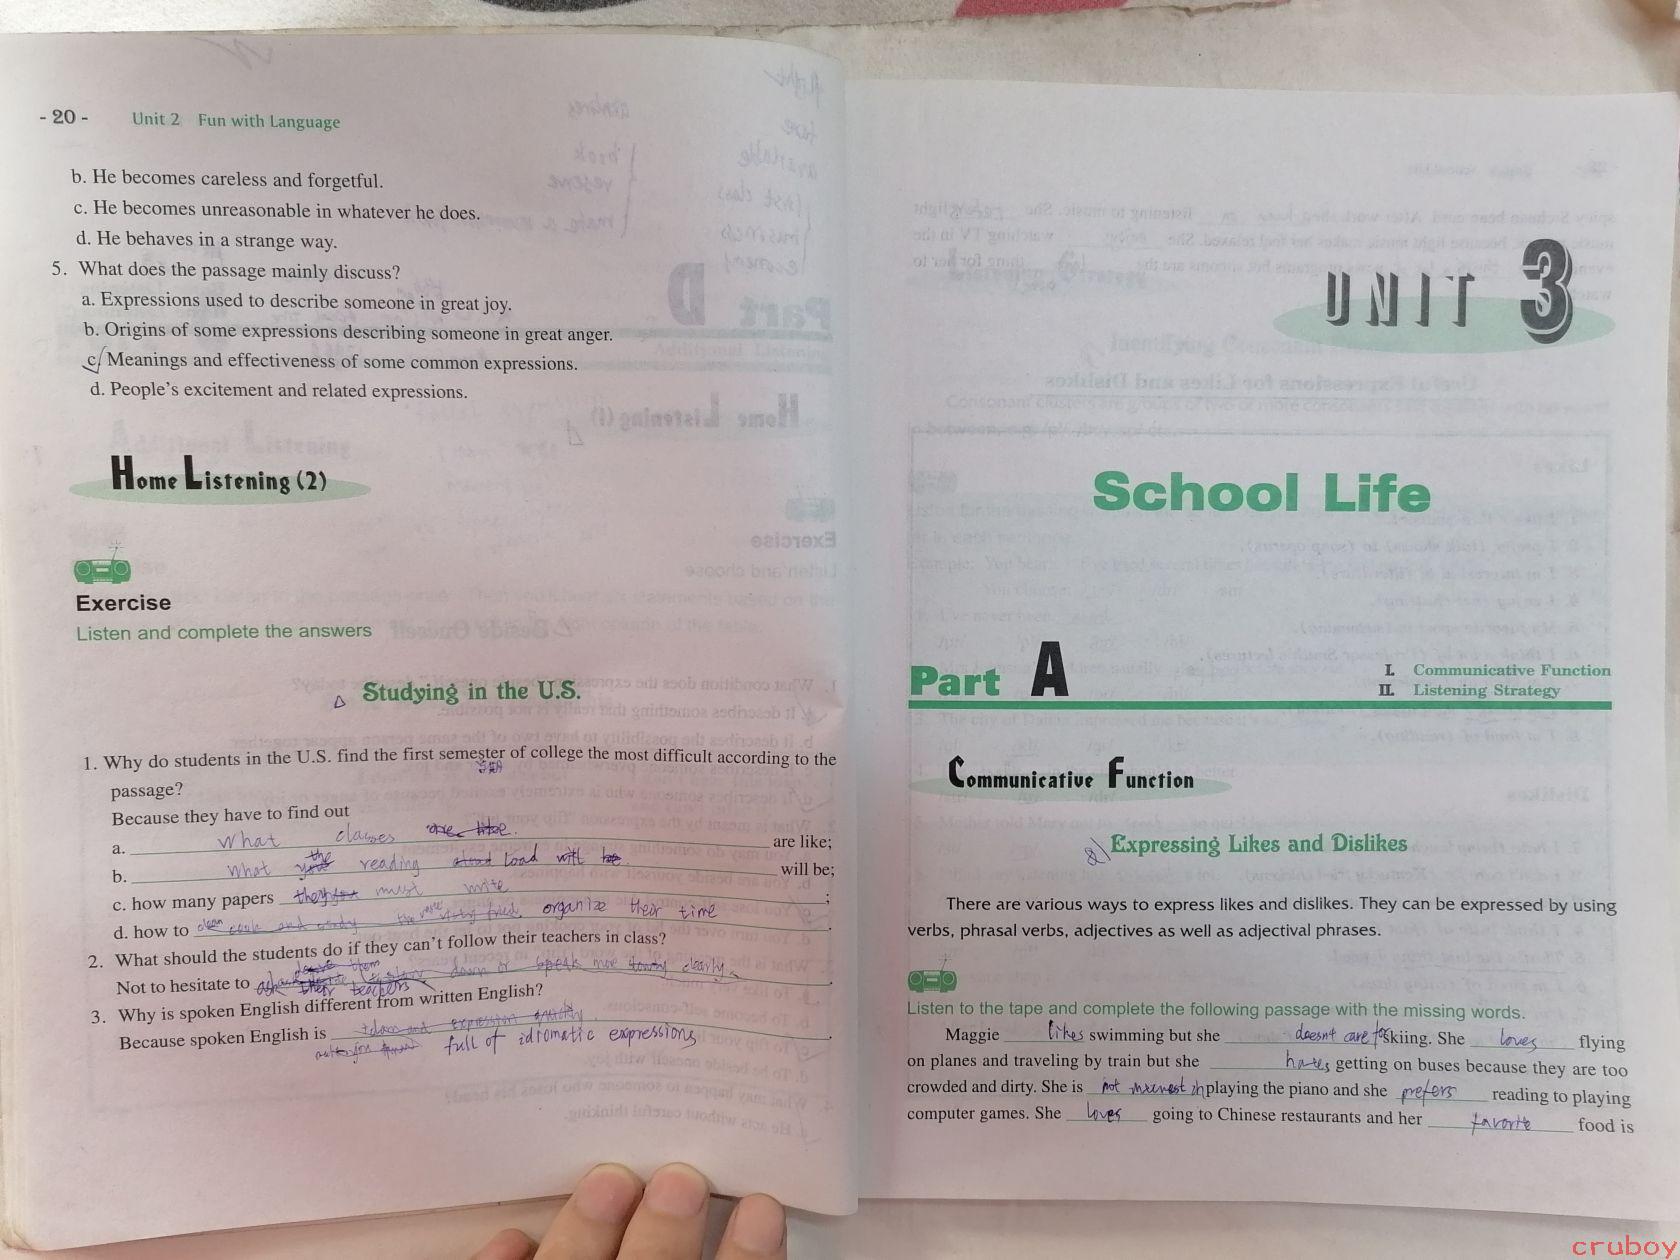 - 20 -
Unit 2 Fun with Language
b. He becomes careless and forgetful.
c. He becomes unreasonable in whatever he does.
d. He behaves in a strange way.
5. What does the passage mainly discuss?
a. Expressions used to describe someone in great joy.
b. Origins of some expressions describing someone in great anger.
c. Meanings and effectiveness of some common expressions.
d. People's excitement and related expressions.
Home Listening (2)
Exercise
Listen and complete the answers
Studying in the U.S.
1. Why do students in the U.S. find the first semester of college the most difficult according to the
学期
passage?
Because they have to find out
a. what classes are like;
b. what the reading load will be;
c. how many papers must write ;
d. how to organize their time .
2. What should the students do if they can't follow their teachers in class?
Not to hesitate to ask their teachers slow down or speak more clearly .
3. Why is spoken English different from written English?
Because spoken English is full of idromatic expressions .
UNIT 3
School Life
Part A
I. Communicative Function
II. Listening Strategy
Communicative Function
Expressing Likes and Dislikes
There are various ways to express likes and dislikes. They can be expressed by using
verbs, phrasal verbs, adjectives as well as adjectival phrases.
Listen to the tape and complete the following passage with the missing words.
Maggie likes swimming but she doesn't care for skiing. She loves flying
on planes and traveling by train but she hates getting on buses because they are too
crowded and dirty. She is not in playing the piano and she prefers reading to playing
computer games. She loves going to Chinese restaurants and her favorite food is
cruboy